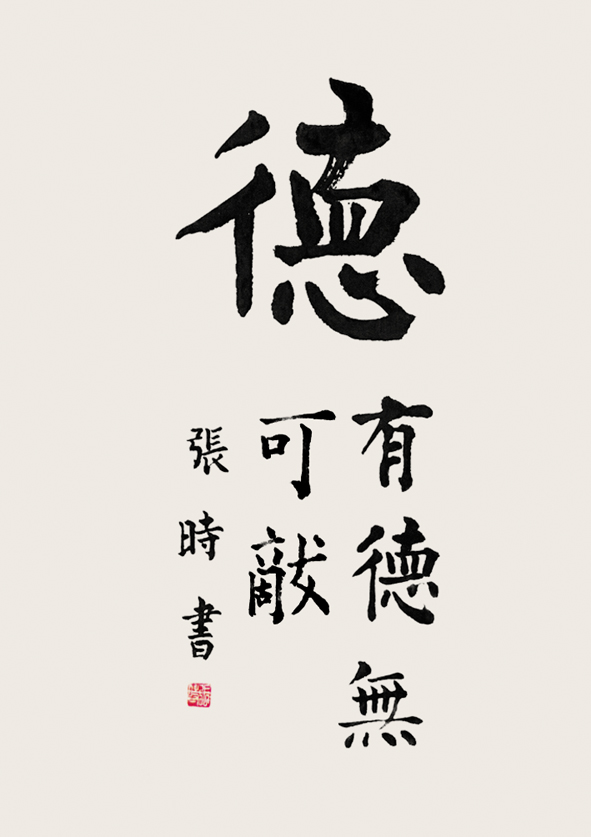 德
有德無
可敵
張時書